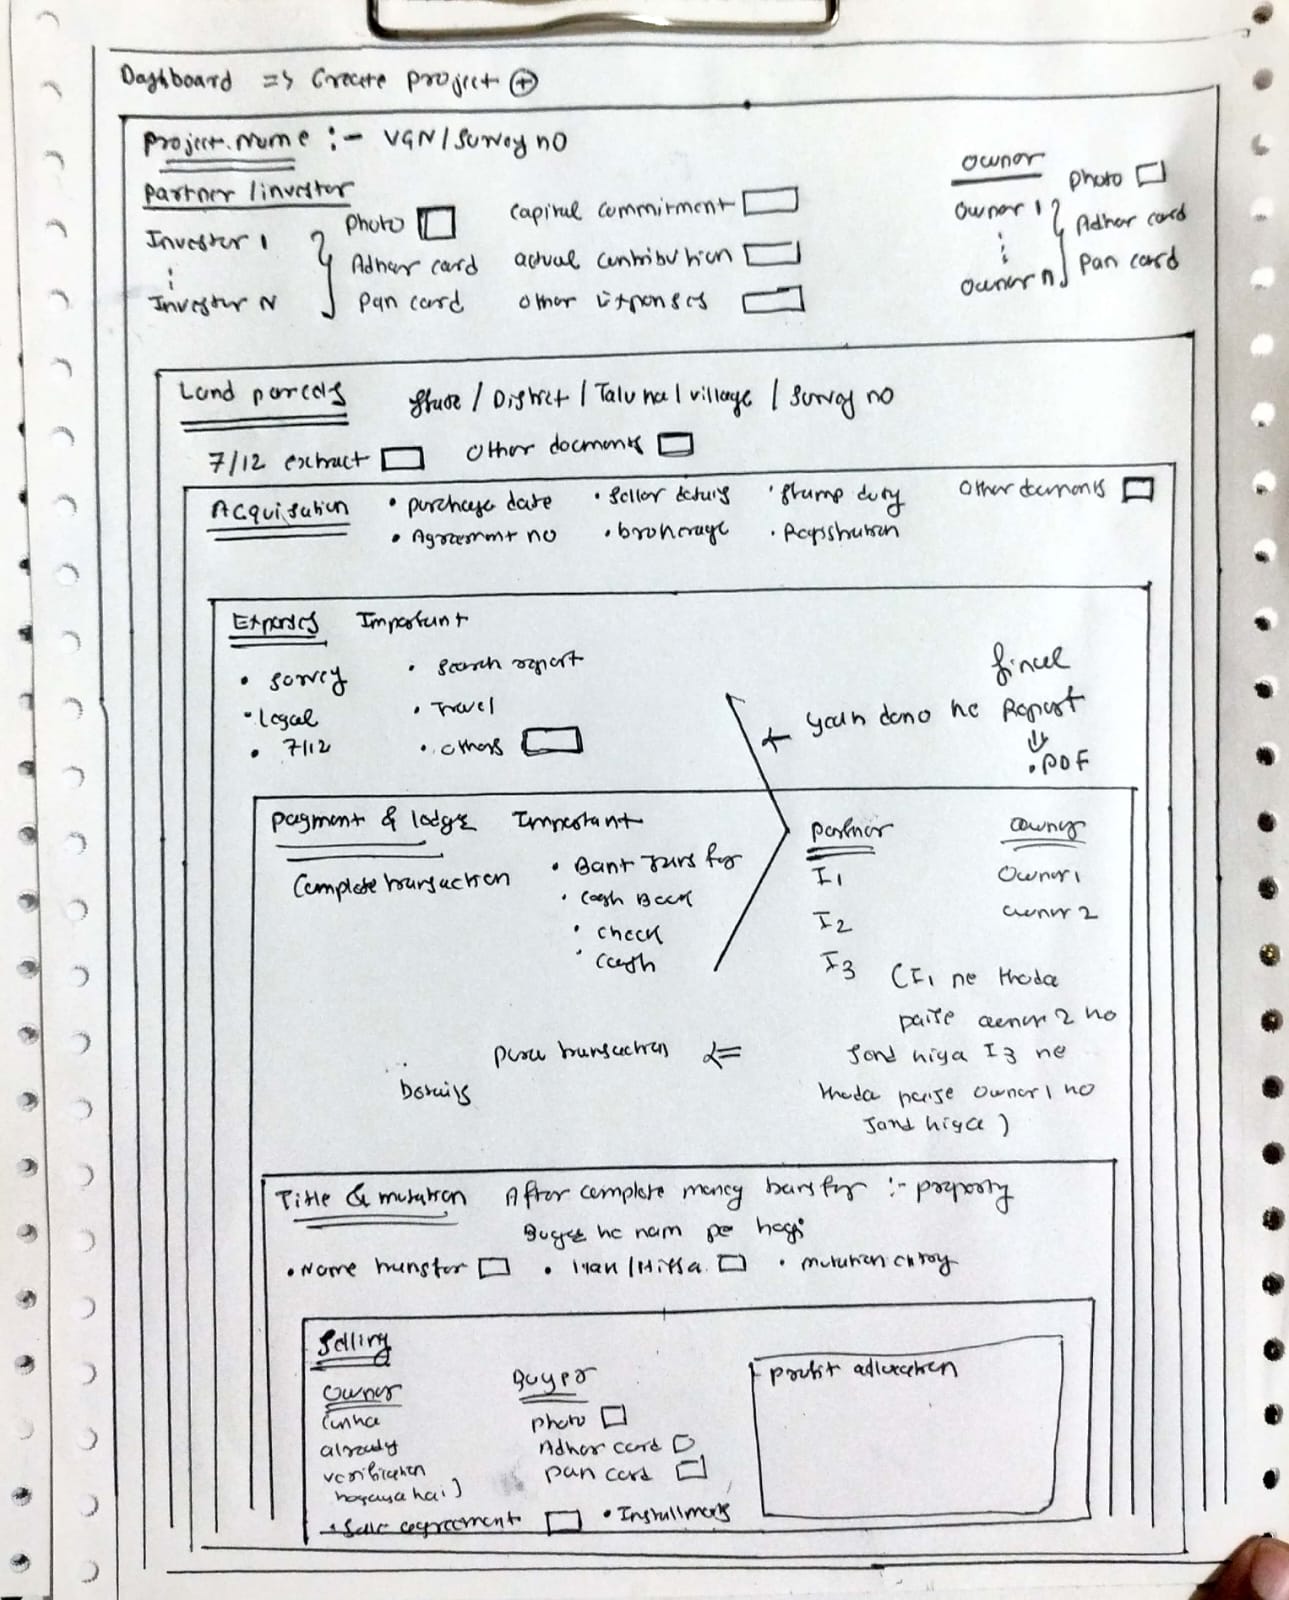 Dashboard => Create project +
Project Name :- VGN / Survey no
Partner / investor
Investor 1
Investor N
Photo
Adhar card
Pan card
Capital commitment
actual contribution
Other Expenses
Owner
Owner 1
Owner n
Photo
Adhar card
Pan card
Land parcels
State / District / Taluka / village / Survey no
7/12 extract
Other documents
Acquisation
• purchase date
• Agreement no
• Seller details
• brokerage
• Stamp duty
• Registration
Other documents
Expenses Important
• Survey
• Legal
• 7/12
• Search report
• Travel
• others
final
dono ke Report
• PDF
Payment & Important
Complete transaction
• Bank Transfer
• Cash Book
• check
• Cash
Partner
I1
I2
I3
Owner
Owner 1
Owner 2
(I1 ne thoda
paise owner 2 ko
Send kiya I3 ne
thoda paise owner 1 ko
Send kiya)
pura transaction <=
Details
Title & mutation After complete money transfer :- property
Buyer ke nam pe hogi
• Name transfer
• / Hissa
• mutation entry
Selling
Owner
already
verification
hogaya hai)
Buyer
Photo
Adhar card
Pan card
• Sale agreement
• Installments
profit allocation